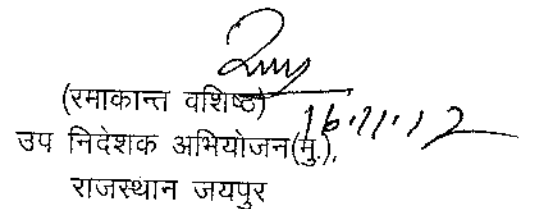 (रमाकान्त वशिष्ठ)
16.11.12
उप निदेशक अभियोजन(मु.),
राजस्थान जयपुर